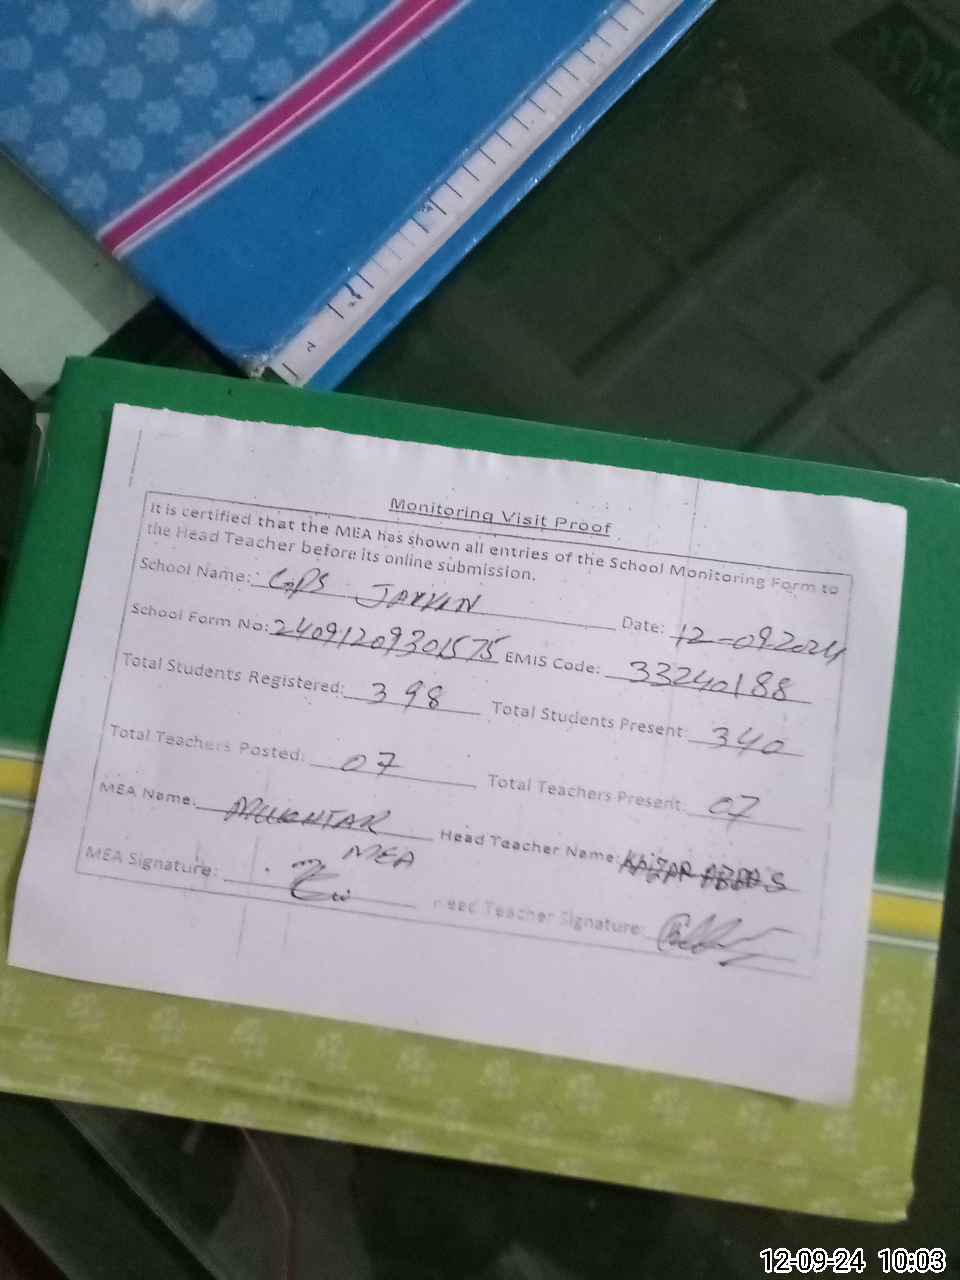 Monitoring Visit Proof
It is certified that the MEA has shown all entries of the School Monitoring Form to
the Head Teacher before its online submission.
School Name: GPS Date: 12-09-2024
School Form No: 24091209301575 EMIS Code: 33240188
Total Students Registered: 398 Total Students Present: 340
Total Teachers Posted: 07 Total Teachers Present: 07
MEA Name: MUKHTAR Head Teacher Name: KAIZAR ABBAS
MEA
MEA Signature: Head Teacher Signature:
12-09-24 10:03